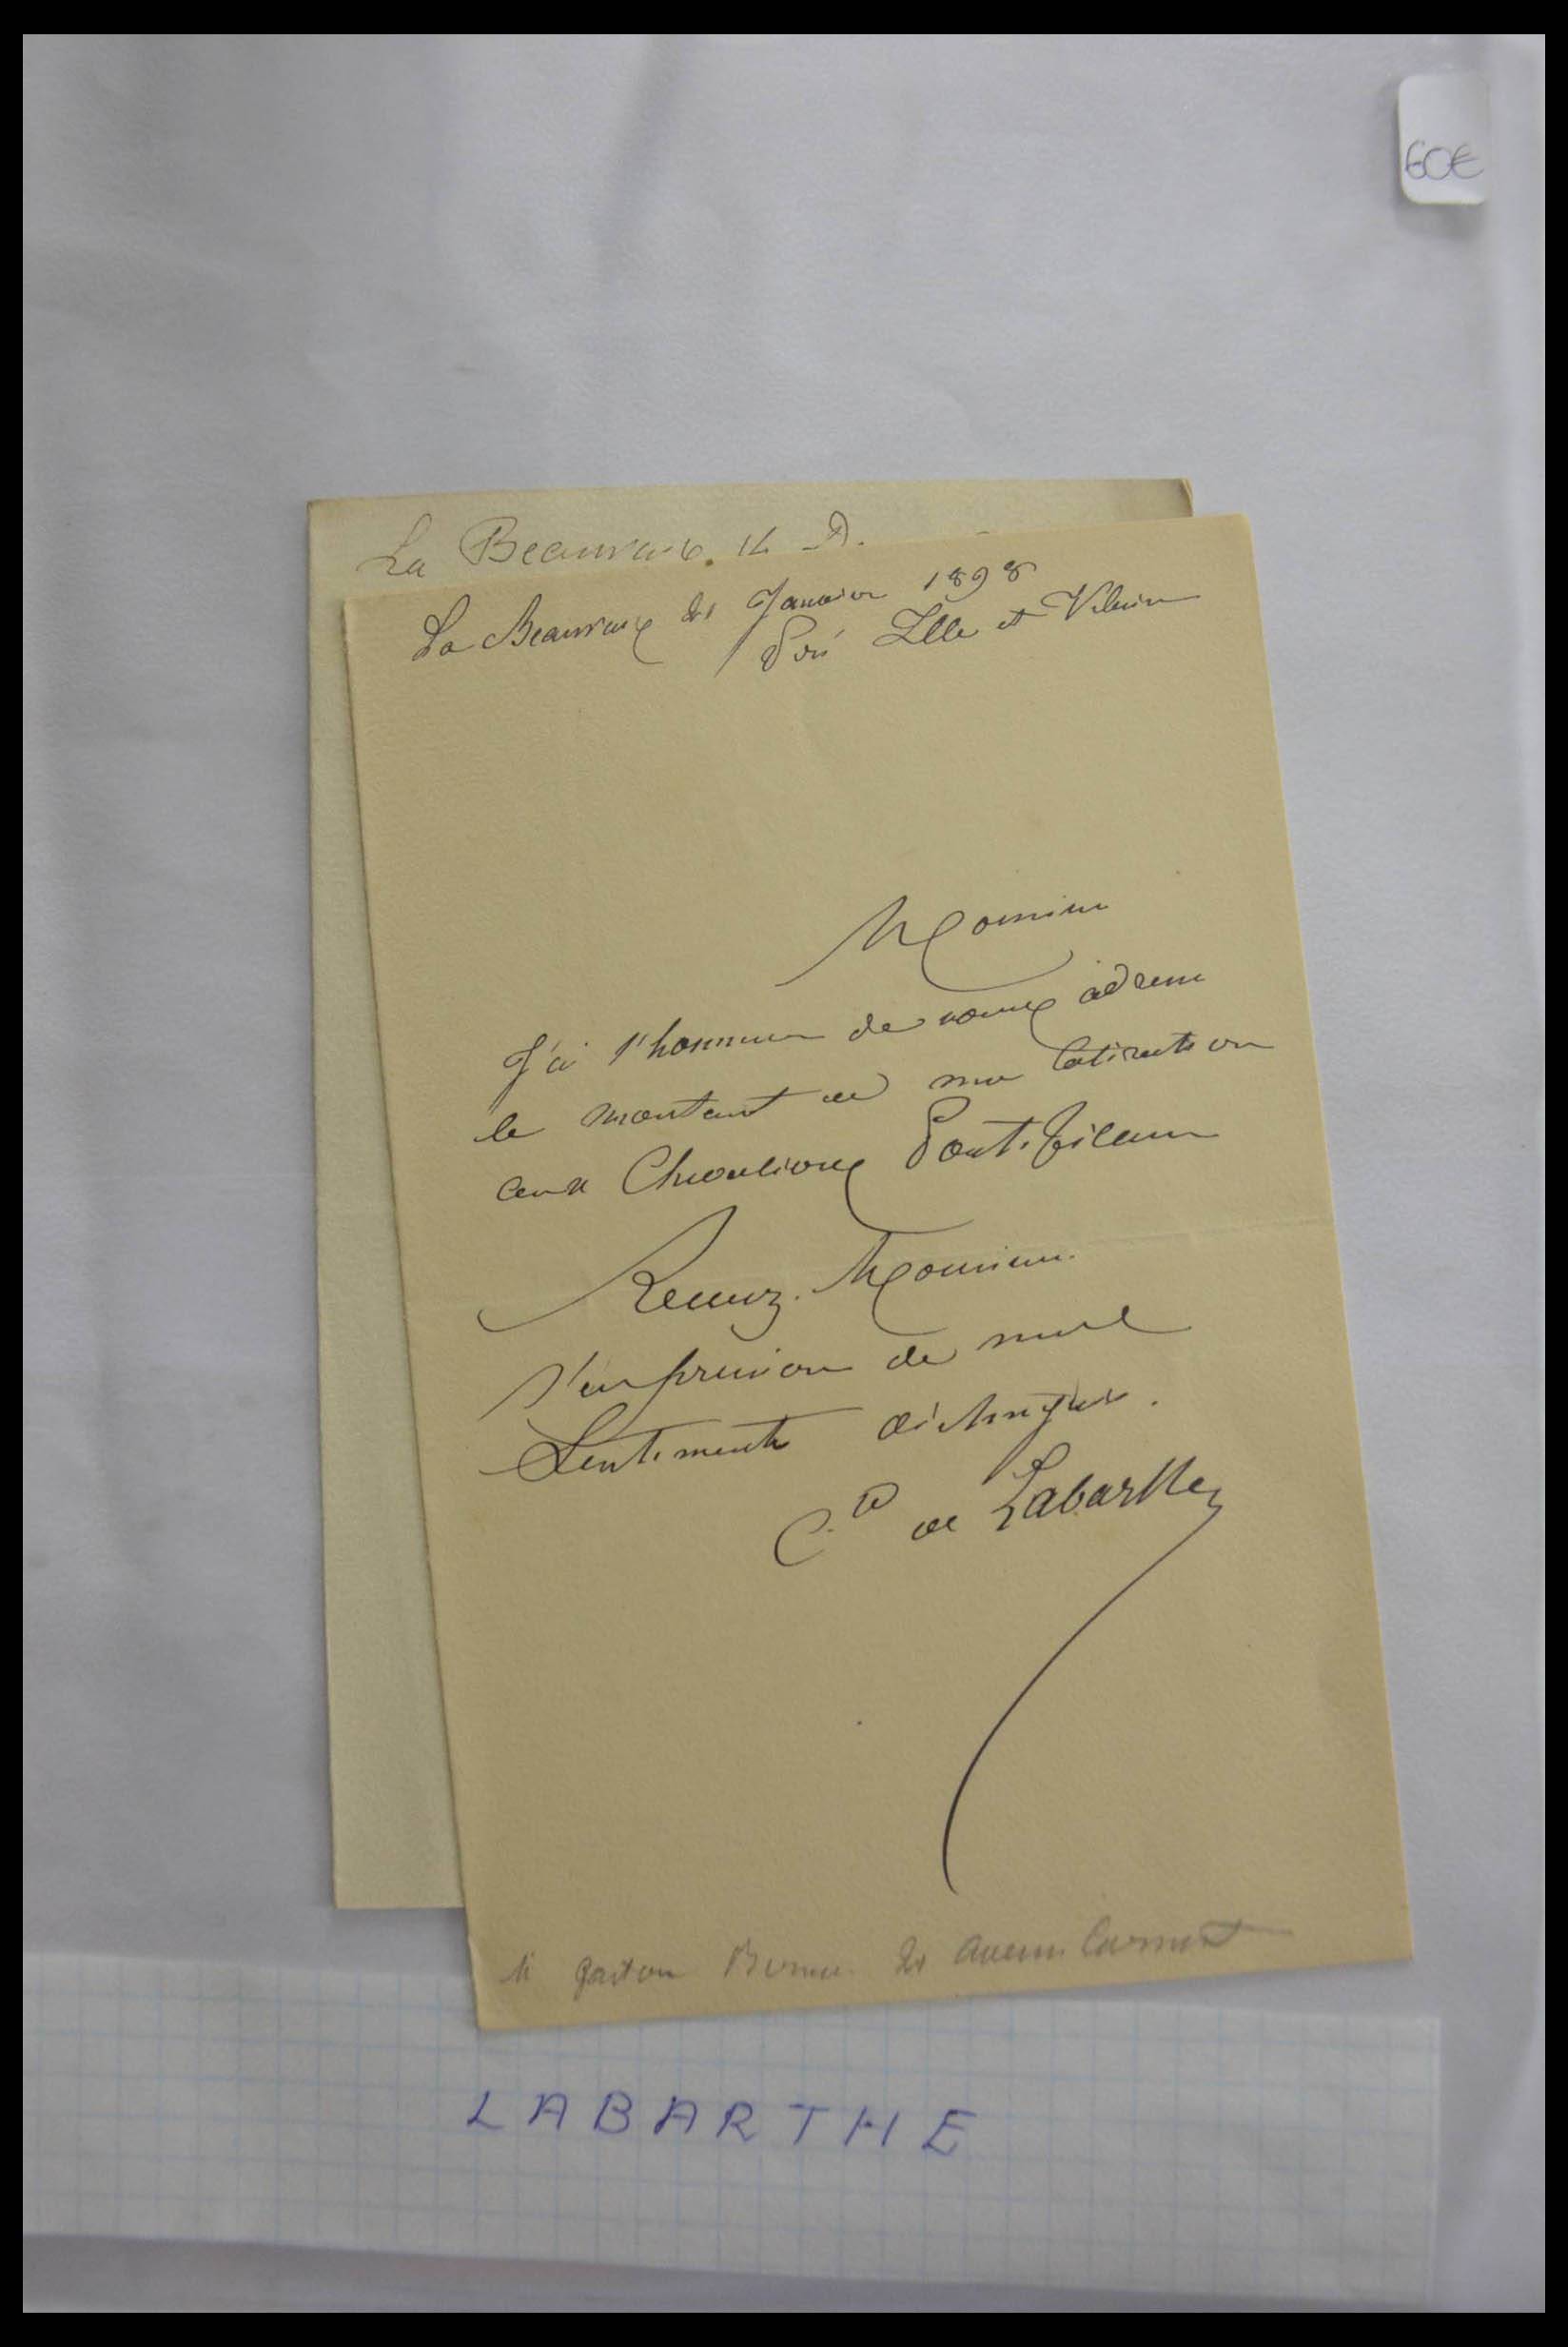 60€
La Beauvais. 14 D.
La Beauvais 21 Janvier 1898
Ille et Vilaine
Monsieur
J'ai l'honneur de vous adresser
le montant de ma Cotisation
aux Chevaliers Pontificaux
Recevez. Monsieur.
l'expression de mes
Sentiments distingués.
Cte de Labarthe
M Gaston 21 avenue Carnot
LABARTHE